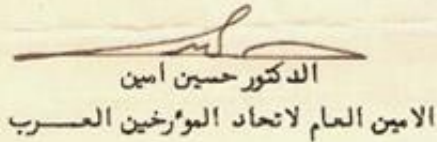 الدكتور حسين امين
الامين العام لاتحاد الموٴرخين العـــرب